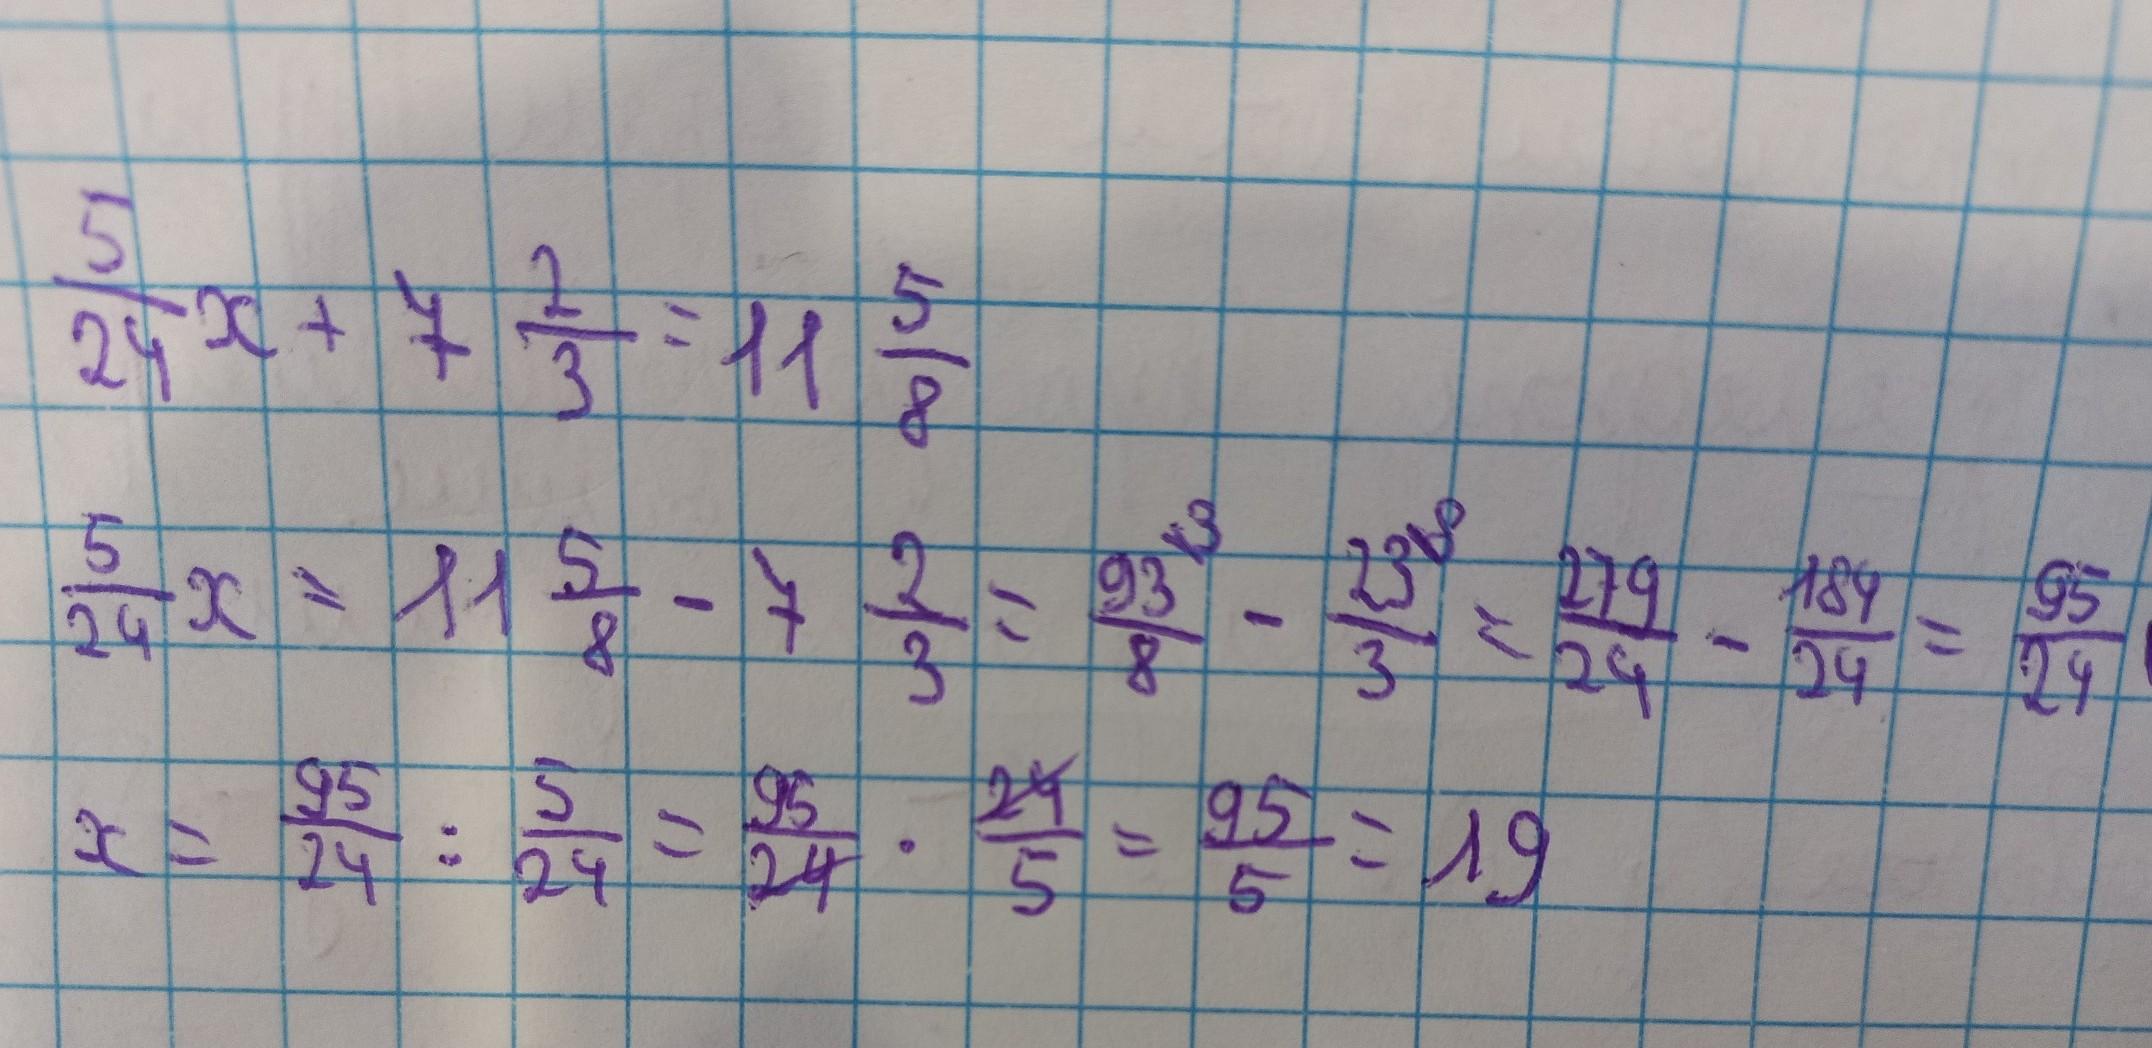 5/24 x + 7 2/3 = 11 5/8
5/24 x = 11 5/8 - 7 2/3 = 93/8 \3 - 23/3 \8 = 279/24 - 184/24 = 95/24
x = 95/24 : 5/24 = 95/24 · 24/5 = 95/5 = 19